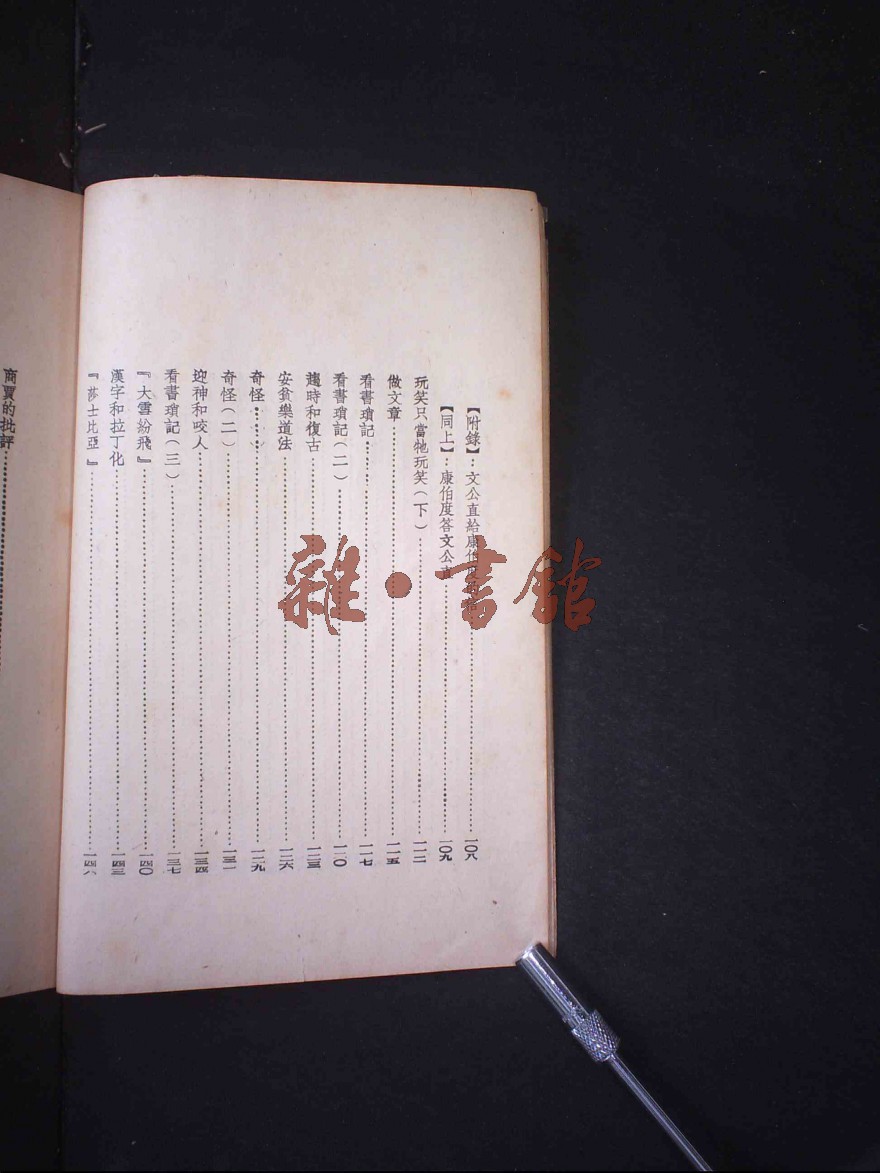 【附錄】：文公直給康伯……一〇八
【同上】 康伯度答文公直……一〇九
玩笑只當牠玩笑(下)……一一二
做文章……一一五
看書瑣記……一一七
看書瑣記(二)……一二〇
趨時和復古……一二三
安貧樂道法……一二六
奇怪……一二九
奇怪(二)……一三一
迎神和咬人……一三四
看書瑣記(三)……一三七
『大雪紛飛』……一四〇
漢字和拉丁化……一四三
『莎士比亞』……一四六
商賈的批評……
雜·書館